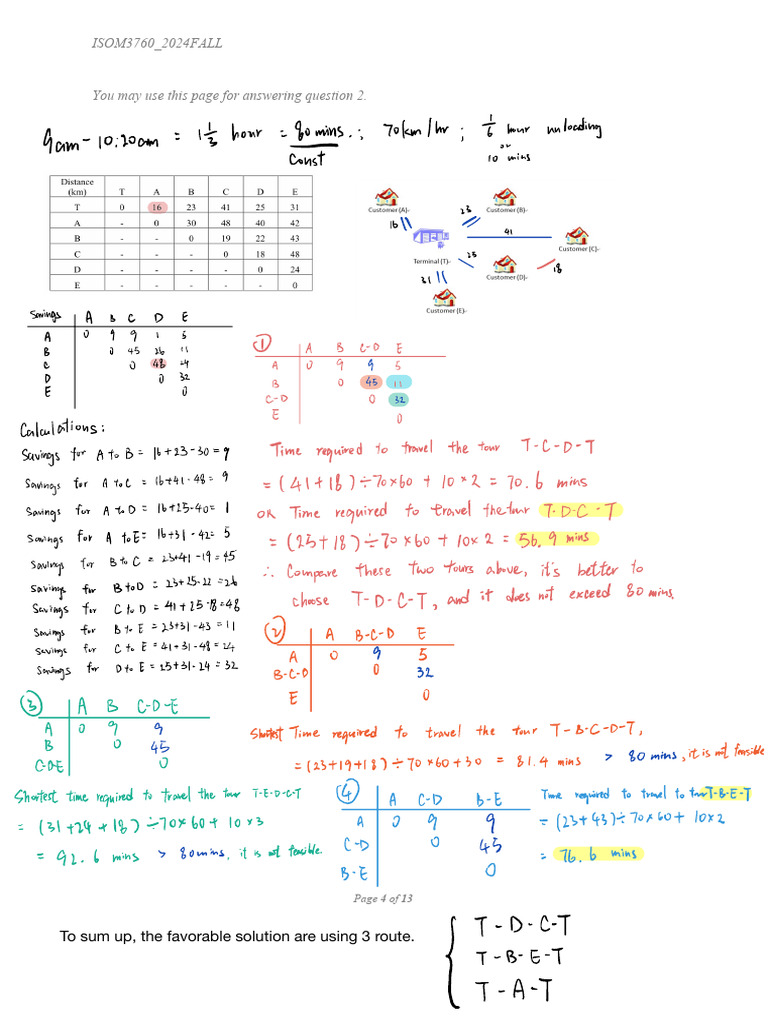 ISOM3760_2024FALL
You may use this page for answering question 2.
9am - 10:20am = 1 1/3 hour = 80 mins. ; 70km/hr ; 1/6 hour unloading
const
or
10 mins
Distance (km) T A B C D E
T 0 16 23 41 25 31
A - 0 30 48 40 42
B - - 0 19 22 43
C - - - 0 18 48
D - - - - 0 24
E - - - - - 0
Customer (A)-
Customer (B)-
23
16
41
Customer (C)-
Terminal (T)-
25
18
31
Customer (D)-
Customer (E)-
Savings A B C D E
A 0 9 9 1 5
B 0 45 26 11
C 0 48 24
D 0 32
E 0
① A B C-D E
A 0 9 9 5
B 0 45 11
C-D 0 32
E 0
Calculations:
Savings for A to B = 16+23-30 = 9
Savings for A to C = 16+41-48 = 9
Savings for A to D = 16+25-40 = 1
Savings for A to E = 16+31-42 = 5
Savings for B to C = 23+41-19 = 45
Savings for B to D = 23+25-22 = 26
Savings for C to D = 41+25-18 = 48
Savings for B to E = 23+31-43 = 11
Savings for C to E = 41+31-48 = 24
Savings for D to E = 25+31-24 = 32
Time required to travel the tour T-C-D-T
= (41+18)÷70×60 + 10×2 = 70.6 mins
OR Time required to travel the tour T-D-C-T
= (25+18)÷70×60 + 10×2 = 56.9 mins
∴ Compare these two tours above, it's better to
choose T-D-C-T, and it does not exceed 80 mins.
② A B-C-D E
A 0 9 5
B-C-D 0 32
E 0
Shortest Time required to travel the tour T-B-C-D-T,
= (23+19+18)÷70×60+30 = 81.4 mins > 80 mins, it is not feasible
③ A B C-D-E
A 0 9 9
B 0 45
C-D-E 0
Shortest time required to travel the tour T-E-D-C-T
= (31+24+18)÷70×60 + 10×3
= 92.6 mins > 80mins, it is not feasible.
④ A C-D B-E
A 0 9 9
C-D 0 45
B-E 0
Time required to travel to tour T-B-E-T
= (23+43)÷70×60 + 10×2
= 76.6 mins
Page 4 of 13
To sum up, the favorable solution are using 3 route.
T-D-C-T
T-B-E-T
T-A-T